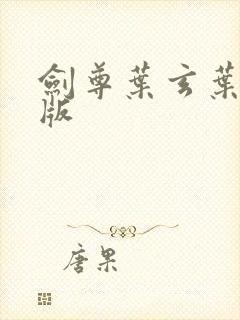 劍尊葉玄葉
版
唐果